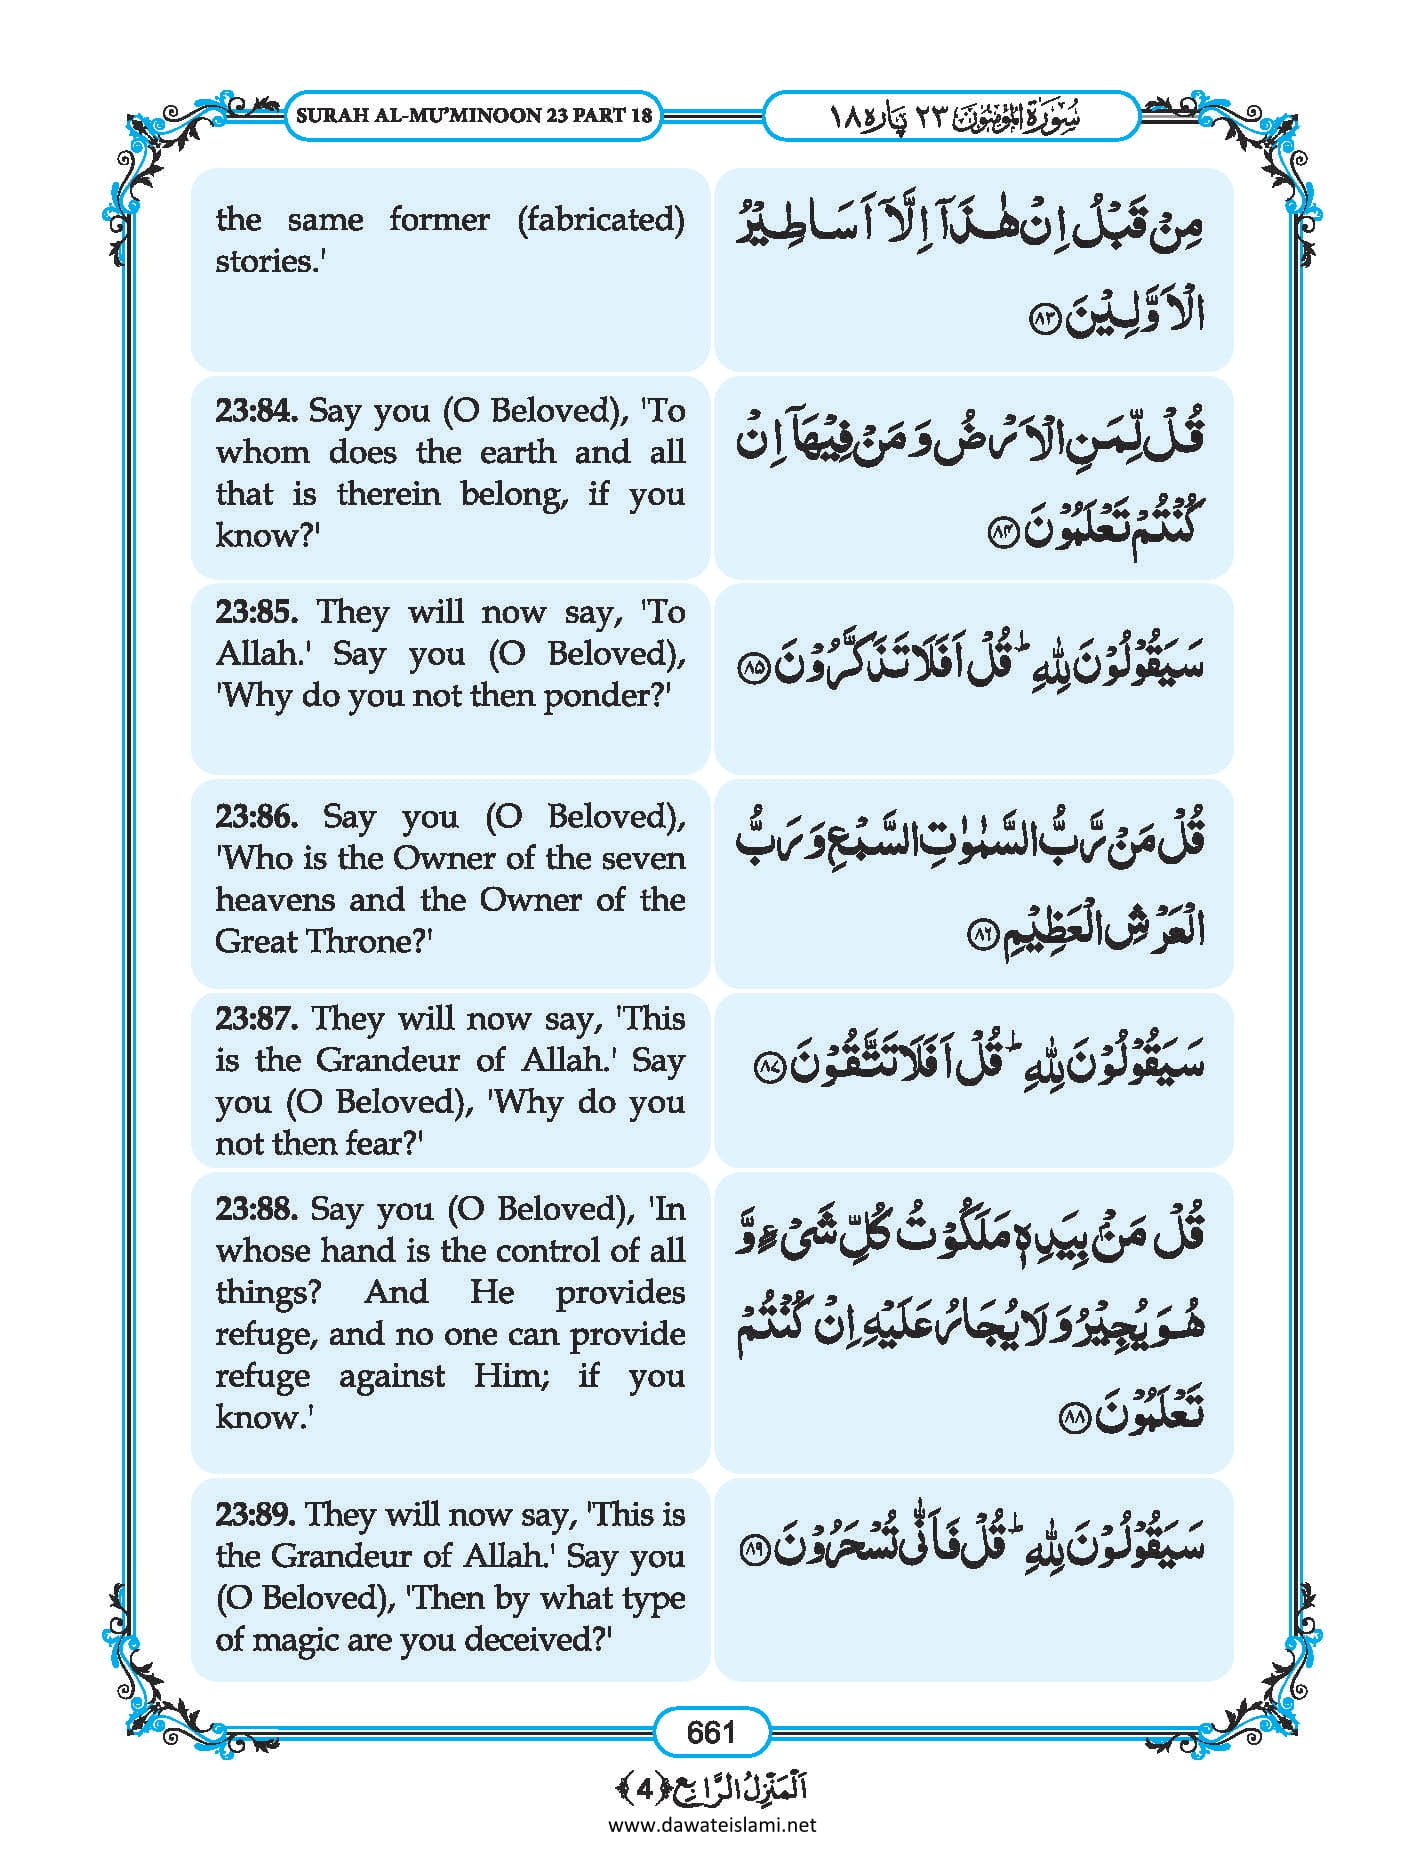 SURAH AL-MU’MINOON 23 PART 18
سُوْرَةُ الْمُؤْمِنُوْن ٢٣ پَارہ ١٨
the same former (fabricated)
stories.'
مِنْ قَبْلُ اِنْ هٰذَاۤ اِلَّاۤ اَسَاطِيْرُ
الْاَوَّلِيْنَ ﴿۸۳﴾
23:84. Say you (O Beloved), 'To
whom does the earth and all
that is therein belong, if you
know?'
قُلْ لِّمَنِ الْاَرْضُ وَ مَنْ فِيْهَاۤ اِنْ
كُنْتُمْ تَعْلَمُوْنَ ﴿۸۴﴾
23:85. They will now say, 'To
Allah.' Say you (O Beloved),
'Why do you not then ponder?'
سَيَقُوْلُوْنَ لِلّٰهِ ؕ قُلْ اَفَلَا تَذَكَّرُوْنَ ﴿۸۵﴾
23:86. Say you (O Beloved),
'Who is the Owner of the seven
heavens and the Owner of the
Great Throne?'
قُلْ مَنْ رَّبُّ السَّمٰوٰتِ السَّبْعِ وَ رَبُّ
الْعَرْشِ الْعَظِيْمِ ﴿۸۶﴾
23:87. They will now say, 'This
is the Grandeur of Allah.' Say
you (O Beloved), 'Why do you
not then fear?'
سَيَقُوْلُوْنَ لِلّٰهِ ؕ قُلْ اَفَلَا تَتَّقُوْنَ ﴿۸۷﴾
23:88. Say you (O Beloved), 'In
whose hand is the control of all
things? And He provides
refuge, and no one can provide
refuge against Him; if you
know.'
قُلْ مَنْۢ بِيَدِهٖ مَلَكُوْتُ كُلِّ شَیْءٍ وَّ
هُوَ يُجِيْرُ وَ لَا يُجَارُ عَلَيْهِ اِنْ كُنْتُمْ
تَعْلَمُوْنَ ﴿۸۸﴾
23:89. They will now say, 'This is
the Grandeur of Allah.' Say you
(O Beloved), 'Then by what type
of magic are you deceived?'
سَيَقُوْلُوْنَ لِلّٰهِ ؕ قُلْ فَاَنّٰی تُسْحَرُوْنَ ﴿۸۹﴾
661
اَلْمَنْزِلُ الرَّابِع ﴿4﴾
www.dawateislami.net